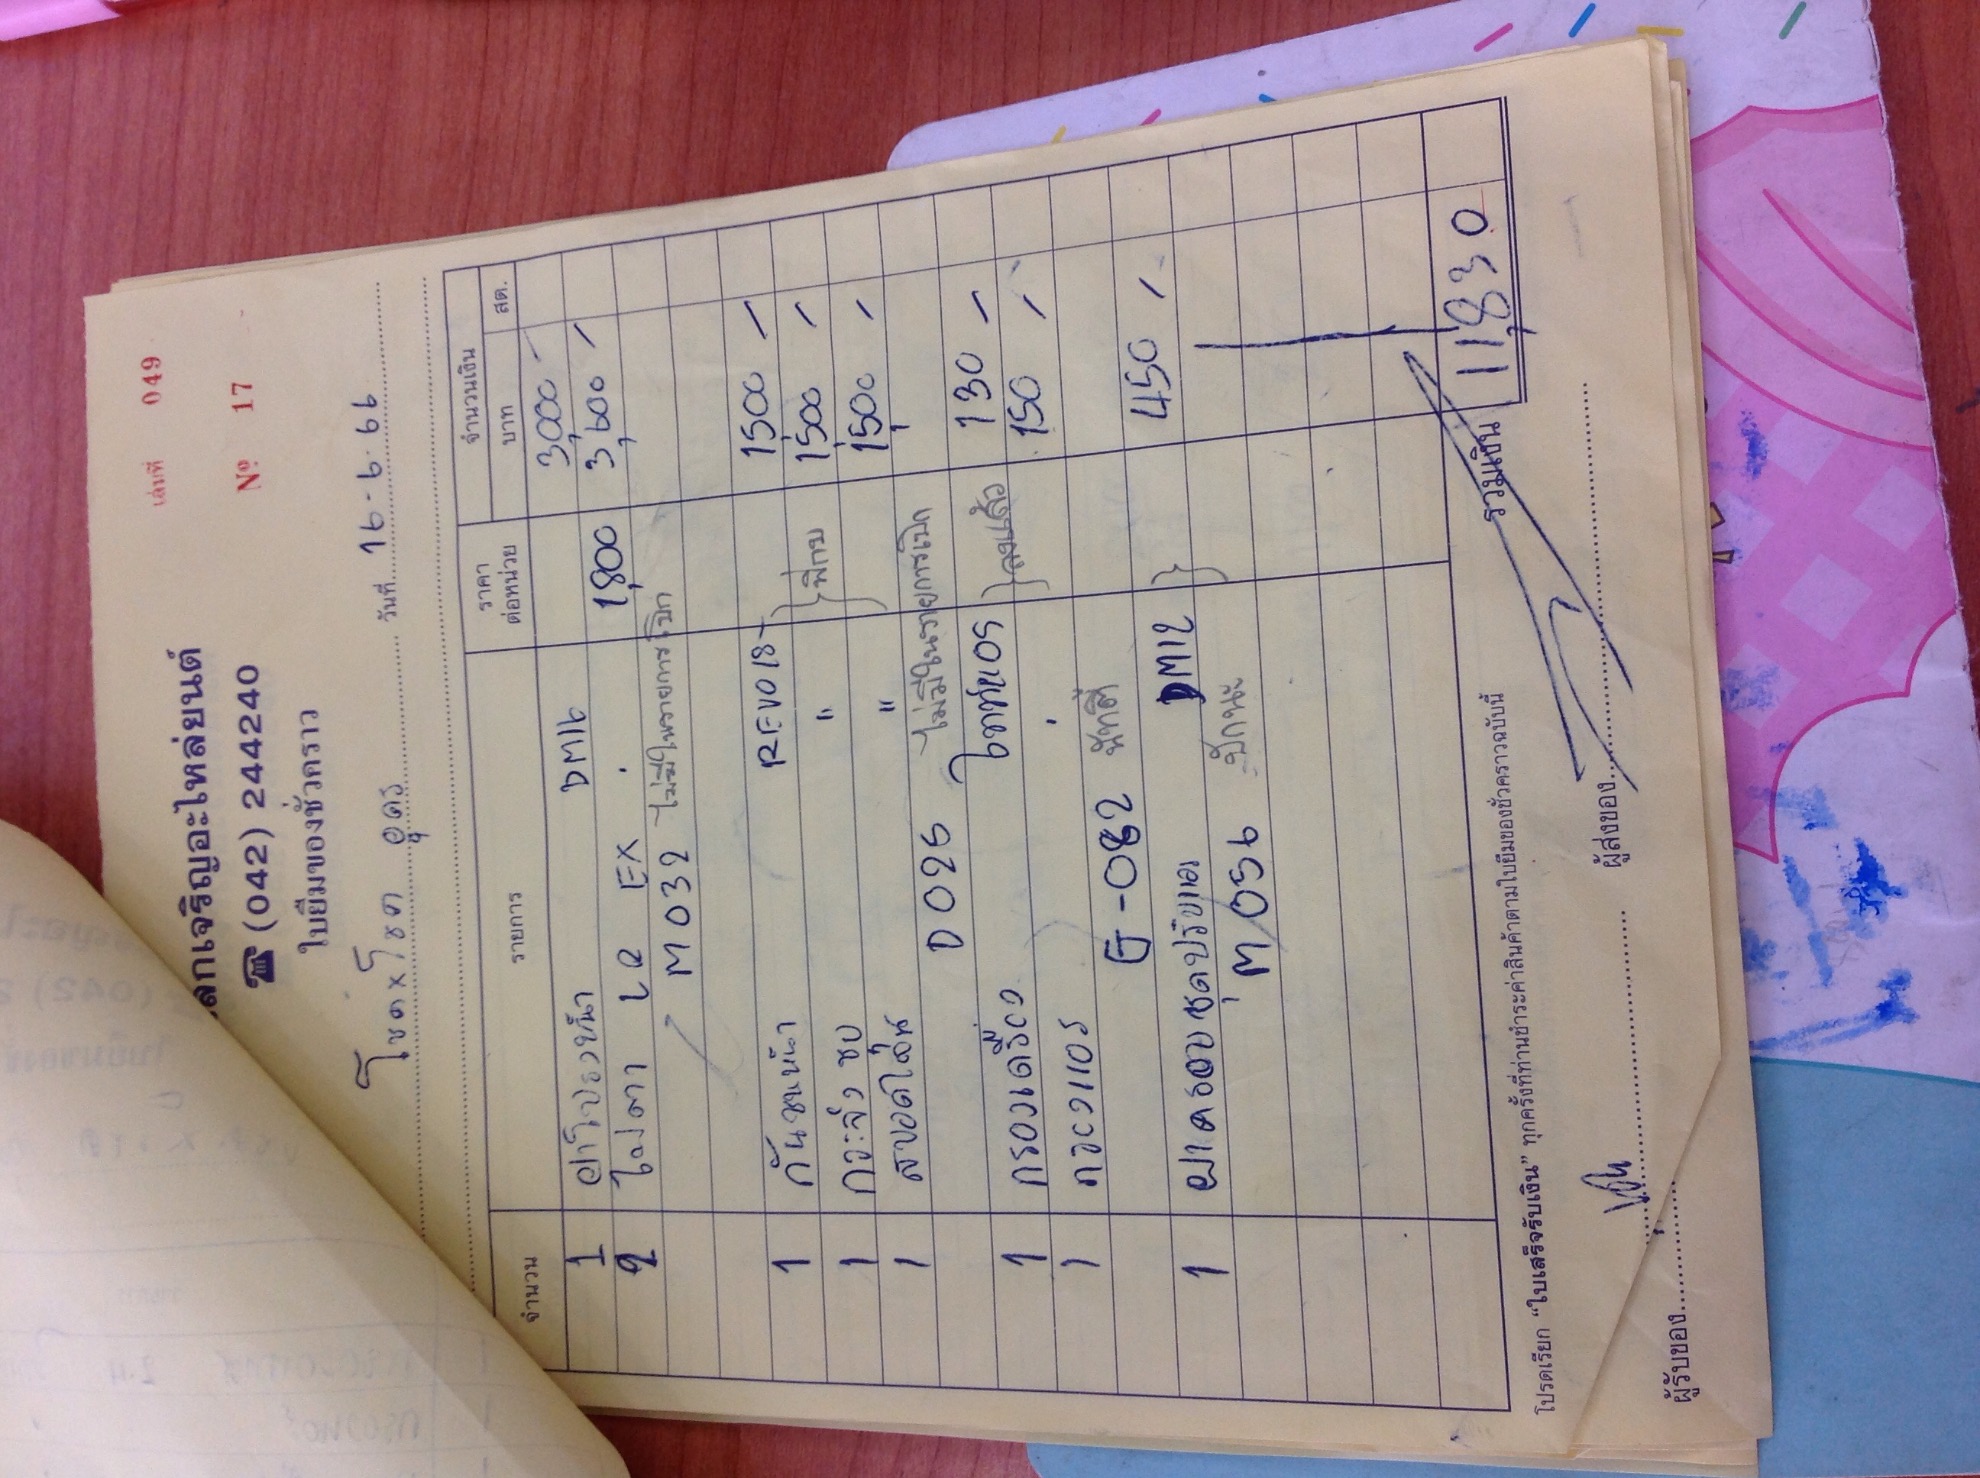 เล่มที่ 049
ลกเจริญอะไหล่ยนต์
☎ (042) 244240
Nº 17
ใบยืมของชั่วคราว
โชคxโชค อุดร วันที่ 16-6-66
จำนวน รายการ ราคาต่อหน่วย จำนวนเงิน
บาท สต.
1 ฝาโปรงหน้า DM16 3,000 -
2 ไฟตา LR EX 1,800 3,600 -
M032 ไม่มีในรายการเบิก
1 กันชนหน้า REVO18 1,500 -
1 กระจังชบ " 1,500 -
1 " 1,500 -
D025 ไม่มีในรายการเบิก
1 กรองเครื่อง 130 -
1 150 -
G-082
1 ฝาครอบชุดปรับแอ DM12 450 -
M056
รวมเงิน 11,830
โปรดเรียก “ใบเสร็จรับเงิน” ทุกครั้งที่ท่านชำระค่าสินค้าตามใบยืมของชั่วคราวฉบับนี้
ผู้รับของ ผู้ส่งของ